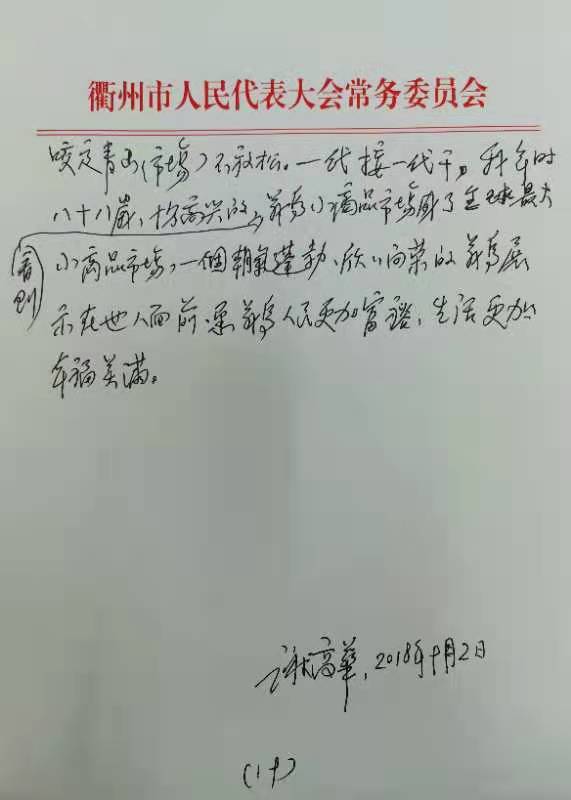 衢州市人民代表大会常务委员会
咬定青山(市場)不放松。一代接一代干,我今时
八十八歲,均高兴的 義烏小商品市場成了全球最大
看到
小商品市場,一個朝氣蓬勃、欣欣向荣的義烏展
示在世人面前。愿義烏人民更加富裕、生活更加
幸福美满。
谢高華,2018年十月2日
(1十)